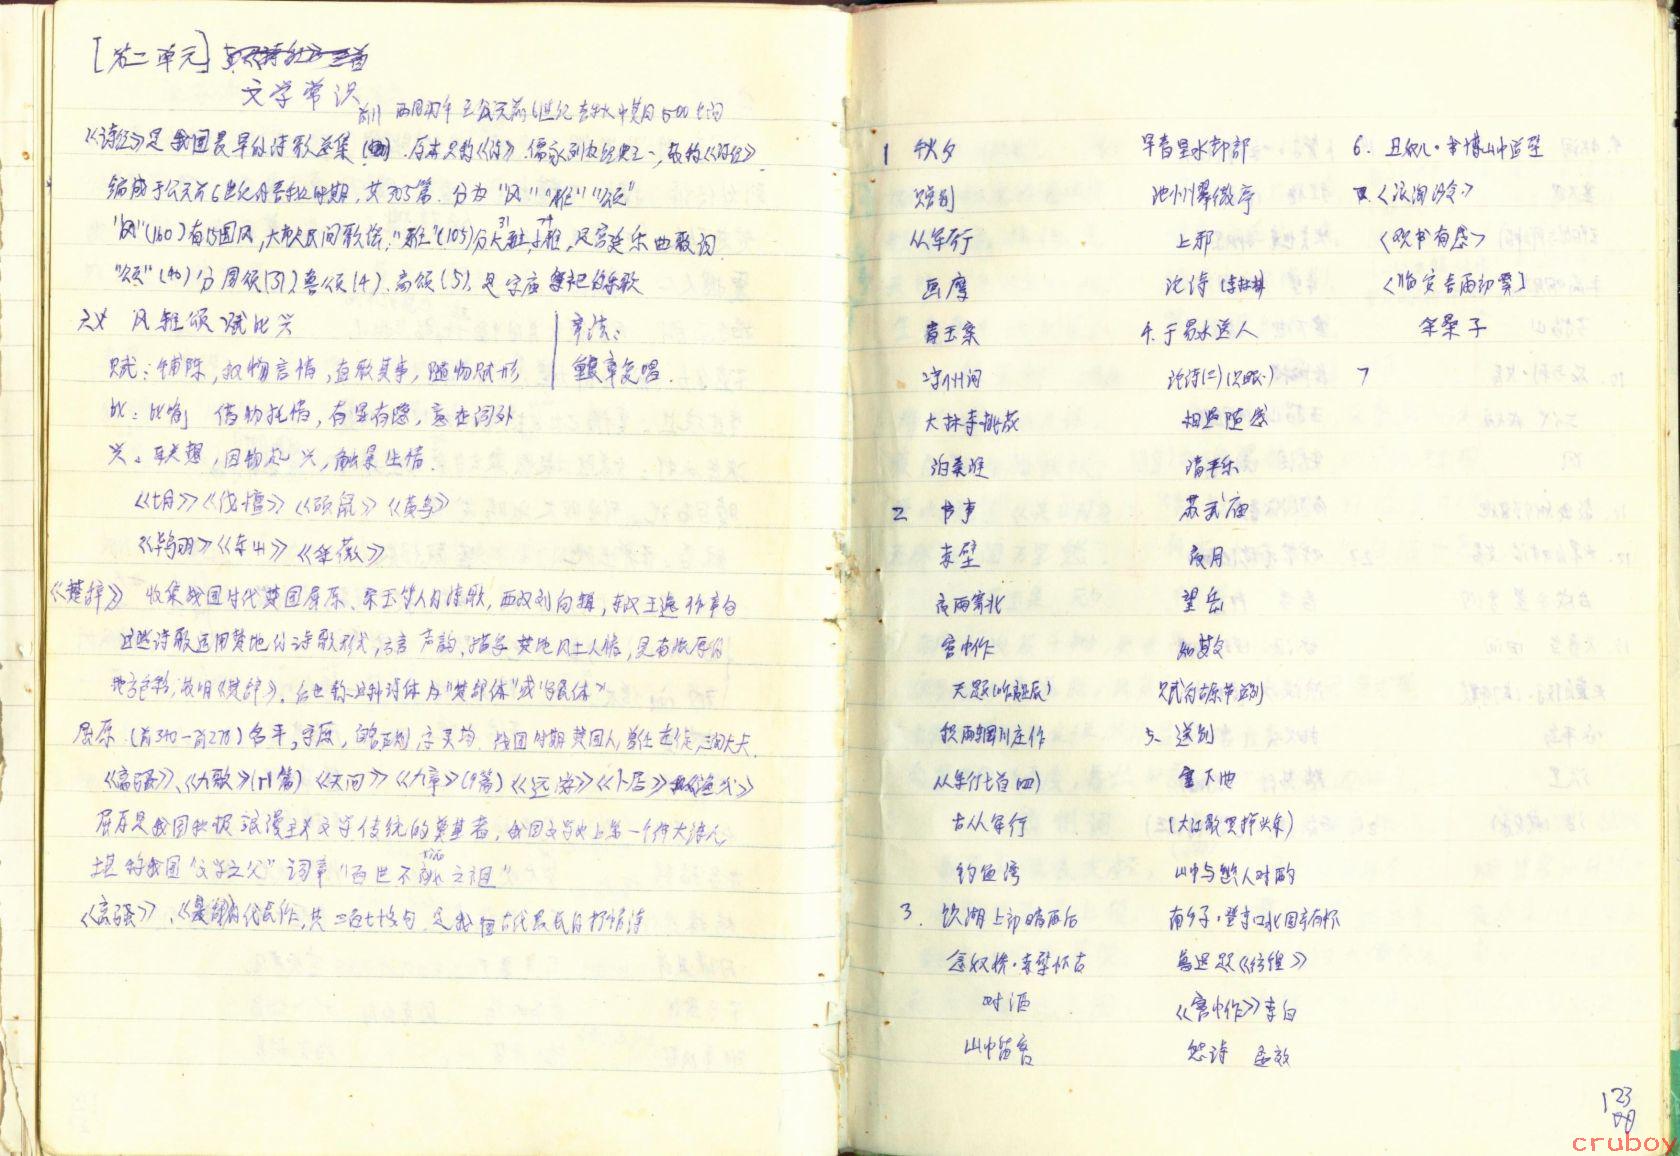 [第二单元]
文学常识
前11 西周初年至公元前6世纪春秋中期500年间
《诗经》是我国最早的诗歌总集 原本只称《诗》，儒家列为经典之一，故称《诗经》
编成于公元前6世纪的春秋时期，共305篇。分为“风”“雅”“颂”
“风”(160)有15国风，大都是民间歌谣，“雅”(105)分大雅31小雅74，是宫廷乐曲歌词
“颂”(40)分周颂(31)、鲁颂(4)、商颂(5)，是宗庙祭祀的乐歌
六义 风雅颂赋比兴
章法：
重章复唱.
赋：铺陈，叙物言情，直歌其事，随物赋形
比：比喻 借物托情，有显有隐，意在词外
兴：联想，因物起兴，触景生情.
《七月》《伐檀》《硕鼠》《黄鸟》
《鸨羽》《东山》《采薇》
《楚辞》 收集战国时代楚国屈原、宋玉等人的诗歌，西汉刘向辑，东汉王逸作章句
这些诗歌运用楚地的诗歌形式，方言声韵，描写楚地风土人情，具有浓厚的
地方色彩，故名《楚辞》。后世称此种诗体为“楚辞体”或“骚体”
屈原 (前340-前278) 名平，字原，战国时期楚国人，曾任左徒，三闾大夫.
《离骚》、《九歌》(11篇)《天问》《九章》(9篇)《远游》《卜居》
屈原是我国积极浪漫主义文学传统的奠基者，我国文学史上第一个伟大诗人
堪称我国“文学之父” 词章“百世不祧之祖”
《离骚》、《楚辞》的代表作，共三百七十多句 是我国古代最长的抒情诗
1 秋夕
赠别
从军行
画鹰
青玉案
凉州词
大林寺桃花
泊秦淮
2 书事
赤壁
夜雨寄北
宫中作
无题(昨夜星辰)
积雨辋川庄作
从军行七首(四)
古从军行
钓鱼湾
3. 饮湖上初晴雨后
念奴娇·赤壁怀古
对酒
山中留客
早春呈水部
池州翠微亭
上邪
论诗
4. 于易水送人
论诗(二)
相思
清平乐
苏武庙
夜月
望岳
赋得古原草送别
5、送别
塞下曲
(大江歌罢掉头东)
山中与幽人对酌
南乡子·登京口北固亭有怀
鲁迅 题《彷徨》
《宫中作》李白
怨诗 孟郊
6. 丑奴儿·书博山道中壁
《浪淘沙》
《观书有感》
采桑子
7
123
cruboy